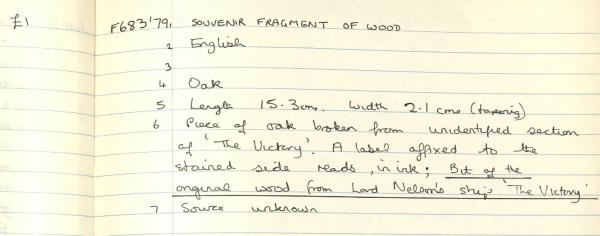 £1 F683'79. SOUVENIR FRAGMENT OF WOOD
2 English
3
4 Oak
5 Length 15.3cms. Width 2.1 cms (tapering)
6 Piece of oak broken from unidentified section
of 'The Victory'. A label affixed to the
stained side reads, in ink; But of the
original wood from Lord Nelson's ship 'The Victory'
7 Source unknown